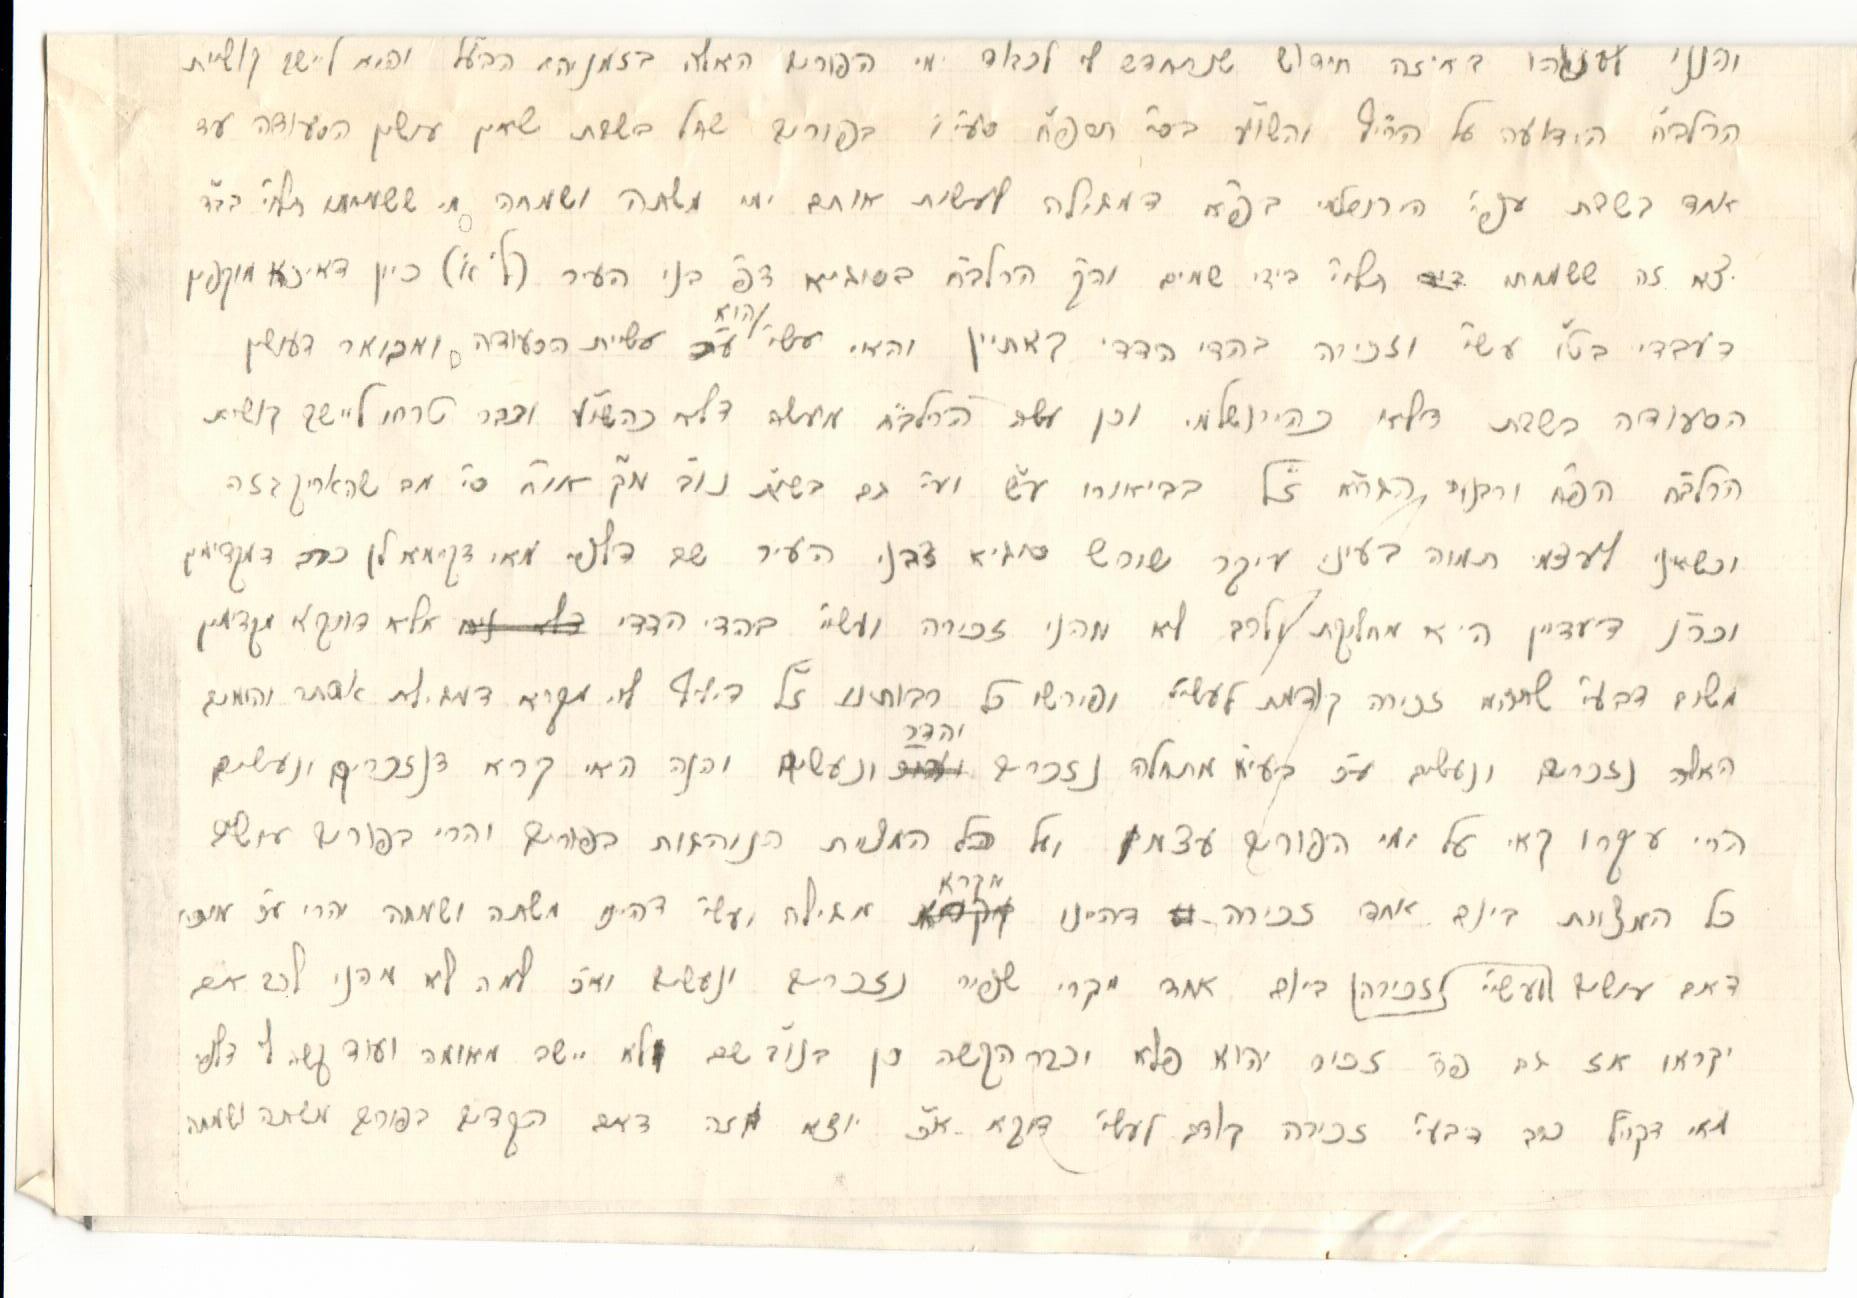 והנני לענגהו באיזה חידוש שנתחדש לי לכבוד ימי הפורים האלה בזמניהם הבע"ל והוא ליישב קושיית
הרלב"ח הידועה על הרי"ף והשו"ע בסי' תרפ"ח סעי' ו' בפורים שחל בשבת שאין עושין הסעודה עד
אחד בשבת ועפ"י הירושלמי בפ"א דמגילה לעשות אותם ימי משתה ושמחה מי ששמחתו תלוי' בב"ד
יצא זה ששמחתו תלוי' בידי שמים והק' הרלב"ח בסוגיא דפ' בני העיר (ל' א') כיון דאיכא מוקפין
דעבדי בט"ו עשי' וזכירה בהדי הדדי קאתיין והאי עשי' ע"כ הוא עשיית הסעודה ומבואר דעושין
הסעודה בשבת דלא כהירושלמי וכן עשה הרלב"ח מעשה דלא כהשו"ע וכבר טרחו ליישב קושית
הרלב"ח הפ"ח ורבנו הגר"א ז"ל בביאורו עי"ש ועי' גם בשו"ת נוב"י מ"ק או"ח סי' מב שהאריך בזה
וכשאני לעצמי תמוה בעיני עיקר שורש סוגיא דבני העיר שם דלפי מאי דקיימא לן כרב דמקדימין
וכר"נ דעדיין היא מחלוקת ולרב לא מהני זכירה ועשי' בהדי הדדי אלא דווקא מקדימין
משום דבעי' שתהא זכירה קודמת לעשי' ופירשו כל רבותינו ז"ל דיליף לי' מקרא דמגילת אסתר והימים
האלה נזכרים ונעשים ע"כ בעי' מתחלה נזכרים והדר ונעשים והנה האי קרא דנזכרים ונעשים
הרי עיקרו קאי על ימי הפורים עצמם ועל כל המצות הנוהגות בפורים והרי בפורים עושים
כל המצוות ביום אחד זכירה דהיינו מקרא מגילה ועשי' דהיינו משתה ושמחה והרי ע"כ מוכח
דאם עושים ועשי' לזכירה ביום אחד מקרי שפיר נזכרים ונעשים וא"כ למה לא מהני לרב אם
יקראו אז גם פר' זכור והוא פלא וכבר הקשה כן בנוב"י שם ולא יישב מאומה ועוד קשה לי דלפי
מאי דקי"ל כרב דבעי' זכירה קודם לעשי' דוקא א"כ יוצא מזה דאם הקדים בפורים משתה ושמחה